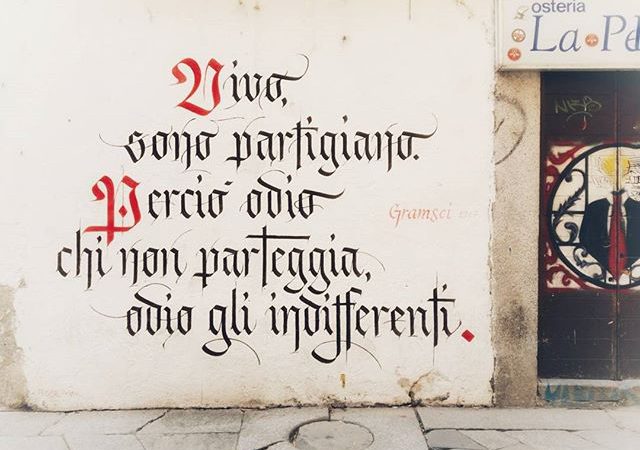 Vivo,
sono partigiano.
Perciò odio
chi non parteggia,
odio gli indifferenti.
Gramsci
osteria
La Pe